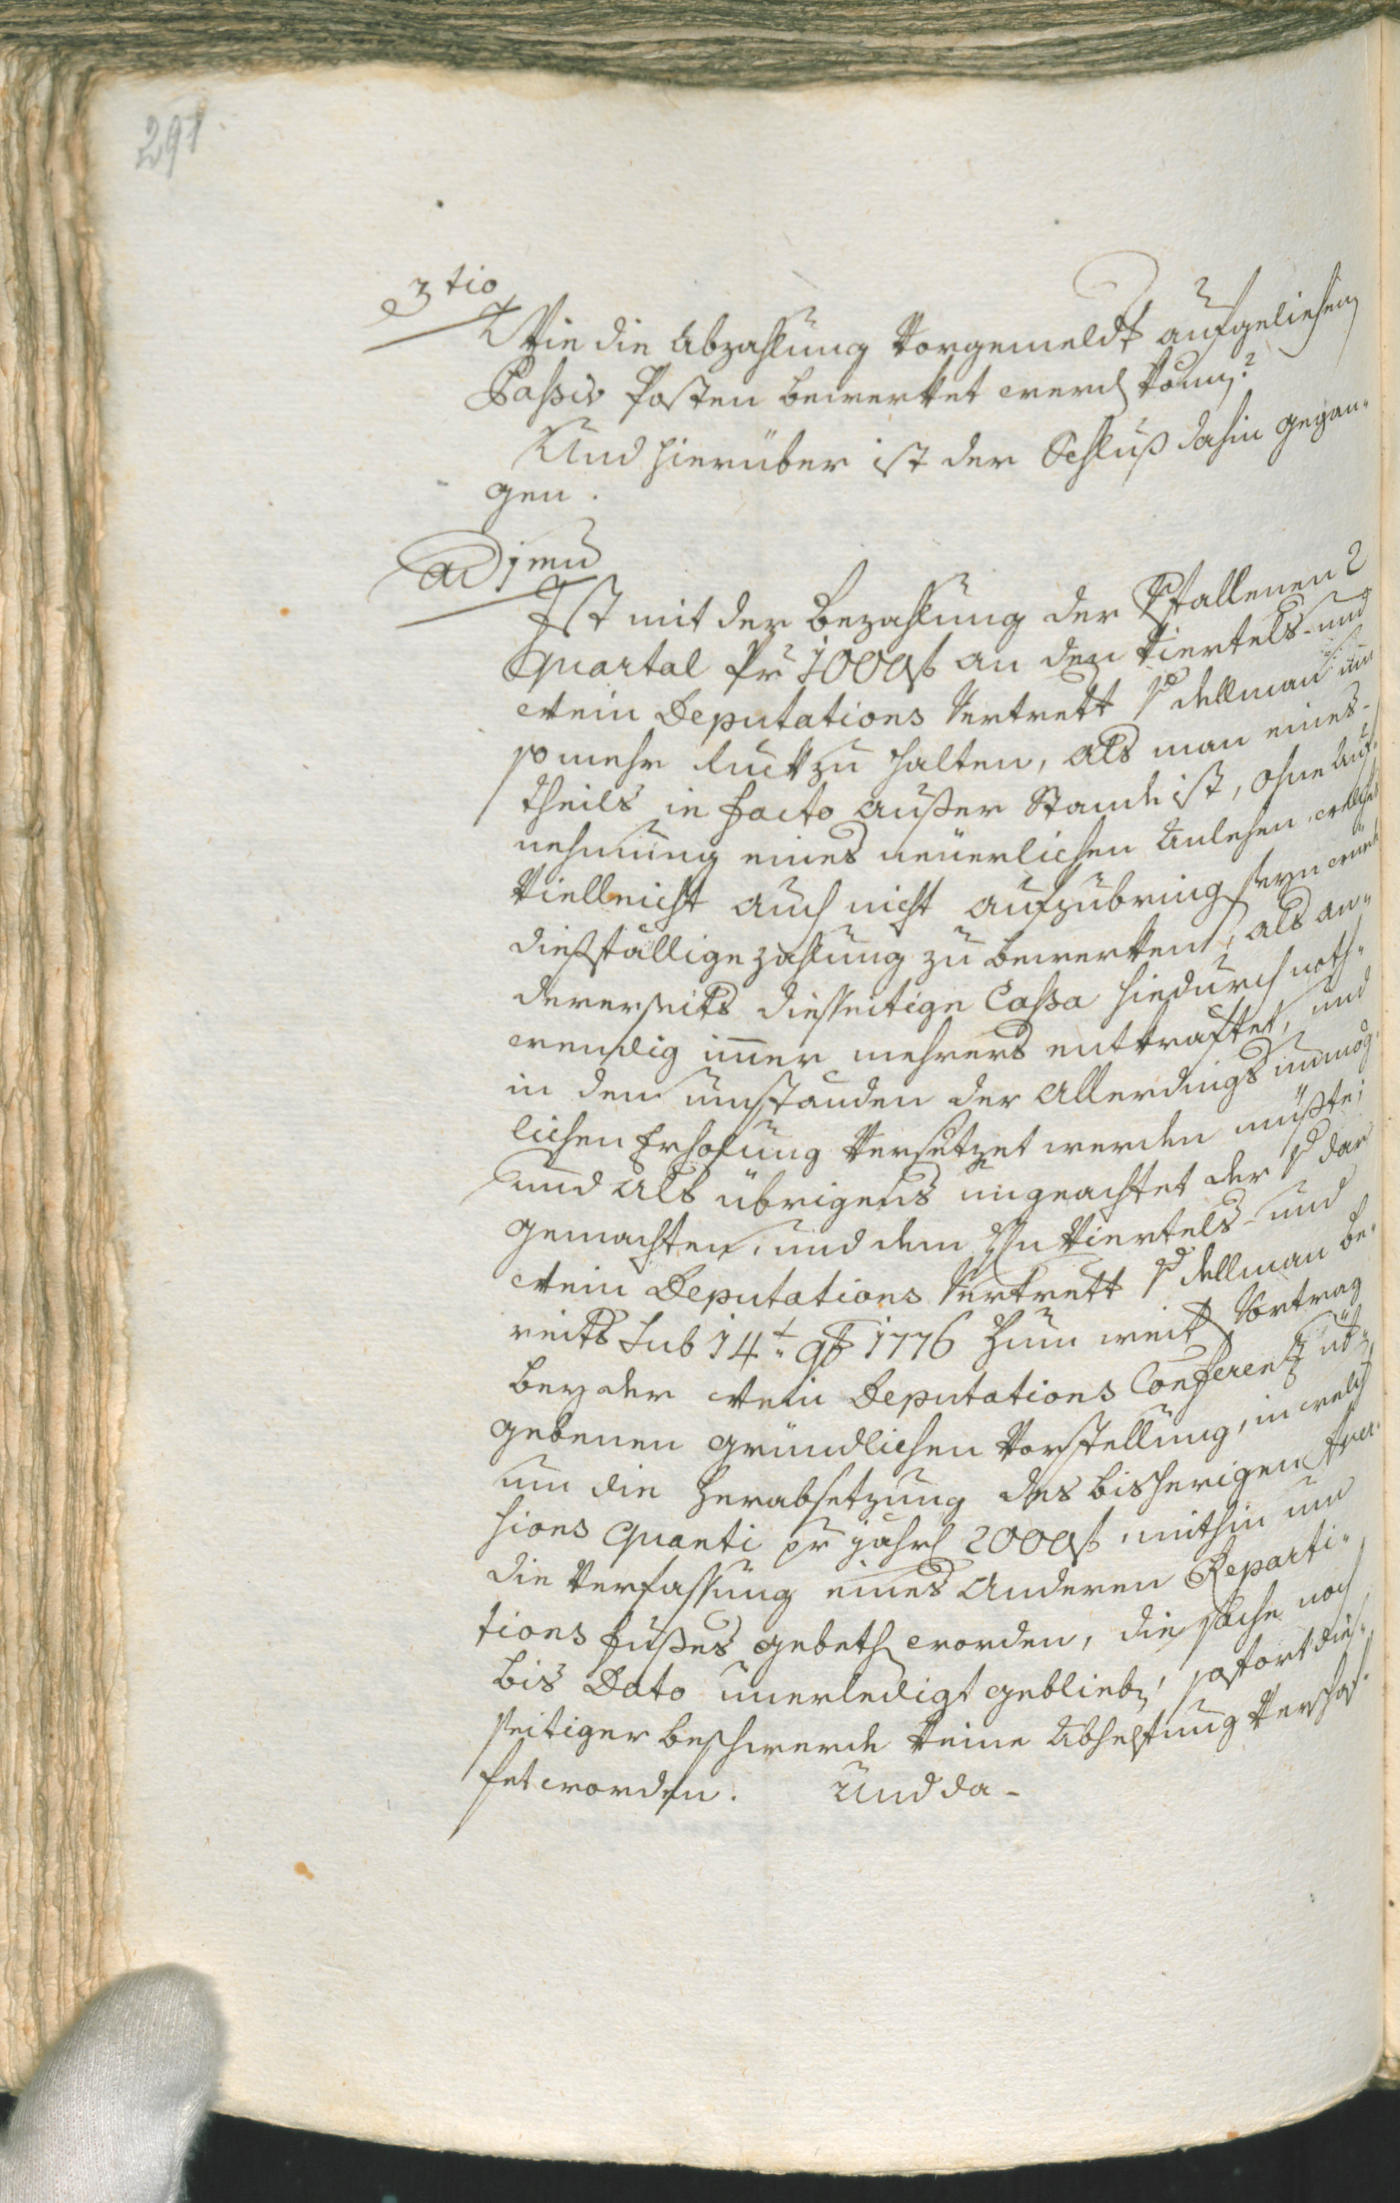 291
3tio
Wie die Abzahlung vorgemeldt aufgeliehen
Passiv Posten bewerket werd könn?
Und hierüber ist der Schluß dahin gegan-
gen.
ad 1mu
Ist mit der Bezahlung der verfallenen 2
quartal pr 1000f an den Viertels- und
Stein Deputations Vertrett v Dellman um
so mehr ruckzu halten, als man eines-
theils in facto außer Stande ist, ohne Auf-
nehmung eines neuerlichen Anlehen, welches
vielleicht auch nicht aufzubring seyn wurde
dießfällige zahlung zu bewerken, als an-
dererseits diesseitige Cassa hiedurch noth-
wendig immer mehrers entkräftet, und
in den umständen der allerdings unmög-
lichen Erholung versetzet werden müßte;
und als übrigens ungeachtet der dar
gemachten, und dem Hn Viertels- und
Stein Deputations Vertrett v Dellman be-
reits sub 14t 9b 1776 zum weit Vortrag
bey der Stein Deputations Conferenz üb-
gebenen gründlichen Vorstellung, in welch
um die Herabsetzung des bisherigen Aver-
sions quanti pr jährl 2000f, mithin um
die Verfassung eines Anderen Reparti-
tions fußes gebeth worden, die sache noch
bis Dato unerledigt geblieb, sofort dies-
seitiger beschwerde keine Abhelfung verschaf-
fet worden. Und da-